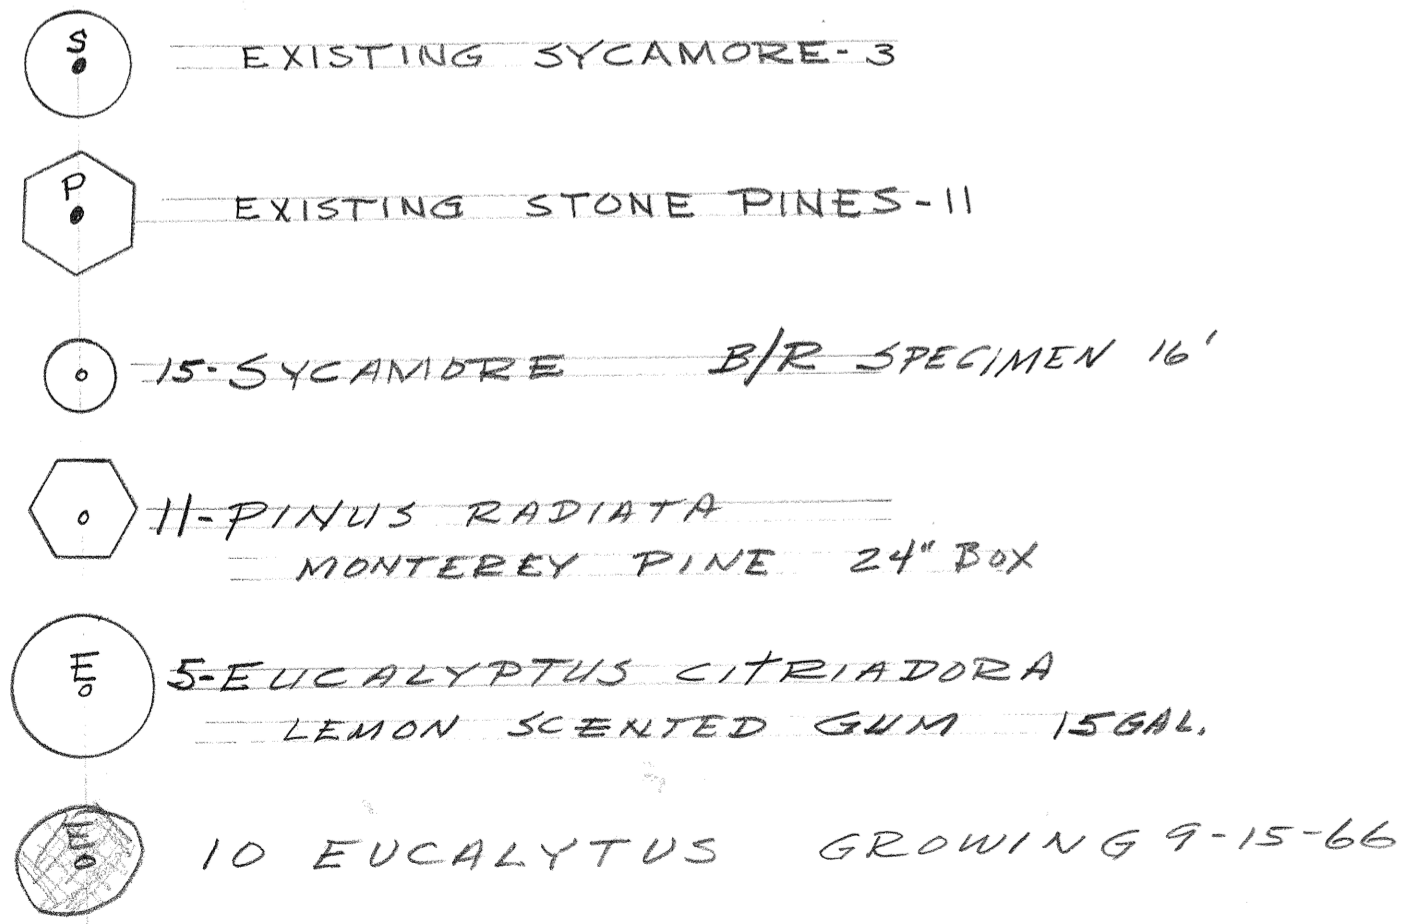 S EXISTING SYCAMORE-3
P EXISTING STONE PINES-11
15-SYCAMORE B/R SPECIMEN 16'
11-PINUS RADIATA
MONTEREY PINE 24" BOX
E 5-EUCALYPTUS CITRIADORA
LEMON SCENTED GUM 15 GAL.
E 10 EUCALYTUS GROWING 9-15-66